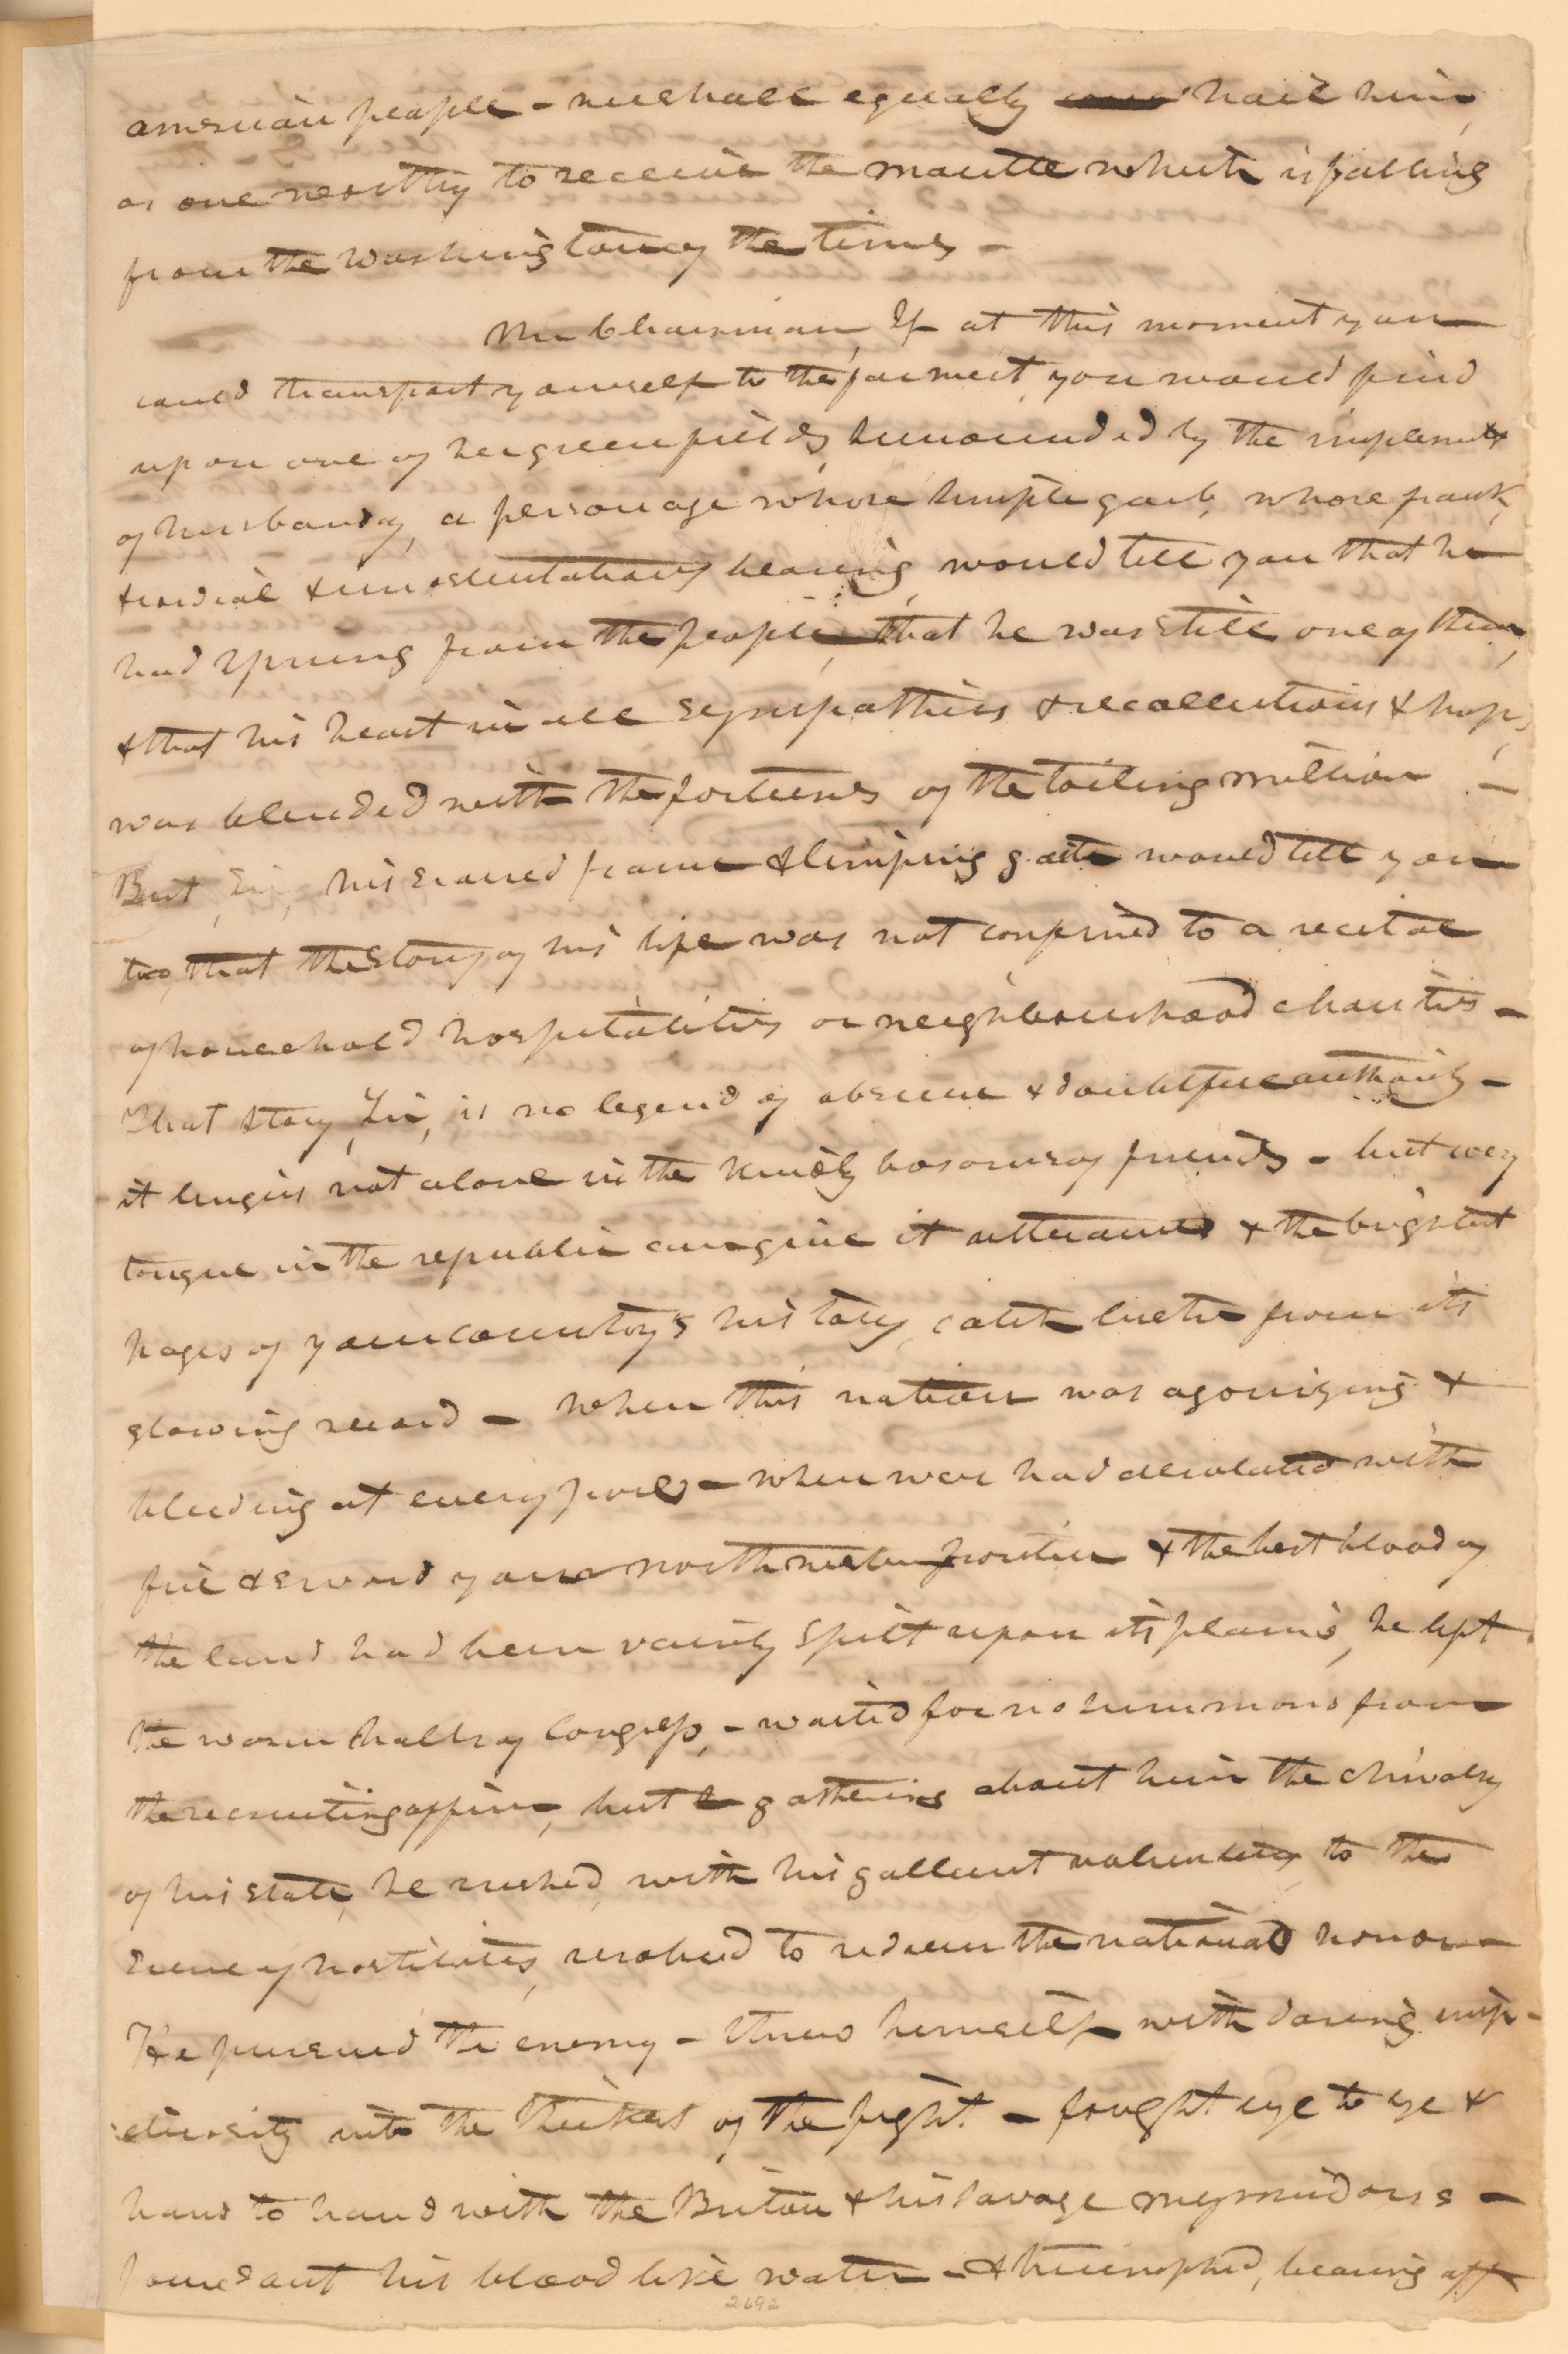 american people – we shall equally hail him,
as one worthy to receive the mantle which is falling
from the Washington of the times –
Mr Chairman, If at this moment you
could transport yourself to the farmest, you would find
upon one of her green fields, surrounded by the implements
of husbandry, a personage whose simple garb, whose frank,
cordial & unostentatious bearing, would tell you that he
had sprung from the people, that he was still one of them,
& that his heart in all sympathies & recollections & hopes,
was blended with the fortunes of the toiling million –
But, Sir, his scarred frame & limping gait would tell you
too, that the story of his life was not confined to a recital
of household hospitalities or neighbourhood charities –
That story, Sir, is no legend of obscure & doubtful authority –
it lingers not alone in the kindly bosoms of friends – but every
tongue in the republic can give it utterance & the brightest
pages of your country's history, catch lustre from its
glowing record – When this nation was agonizing &
bleeding at every pore – when war had desolated with
fire & sword your northwestern frontier & the best blood of
the land had been vainly spilt upon its plains, he left
the warm halls of Congress, – waited for no summons from
the recruiting officer, but gathering about him the chivalry
of his state, he rushed, with his gallant volunteers to the
scene of hostilities, resolved to redeem the national honor –
He pursued the enemy – threw himself with daring imp-
etuosity into the thickest of the fight – fought eye to eye &
hand to hand with the Briton & his savage myrmidons –
poured out his blood like water – & triumphed, bearing off
2692